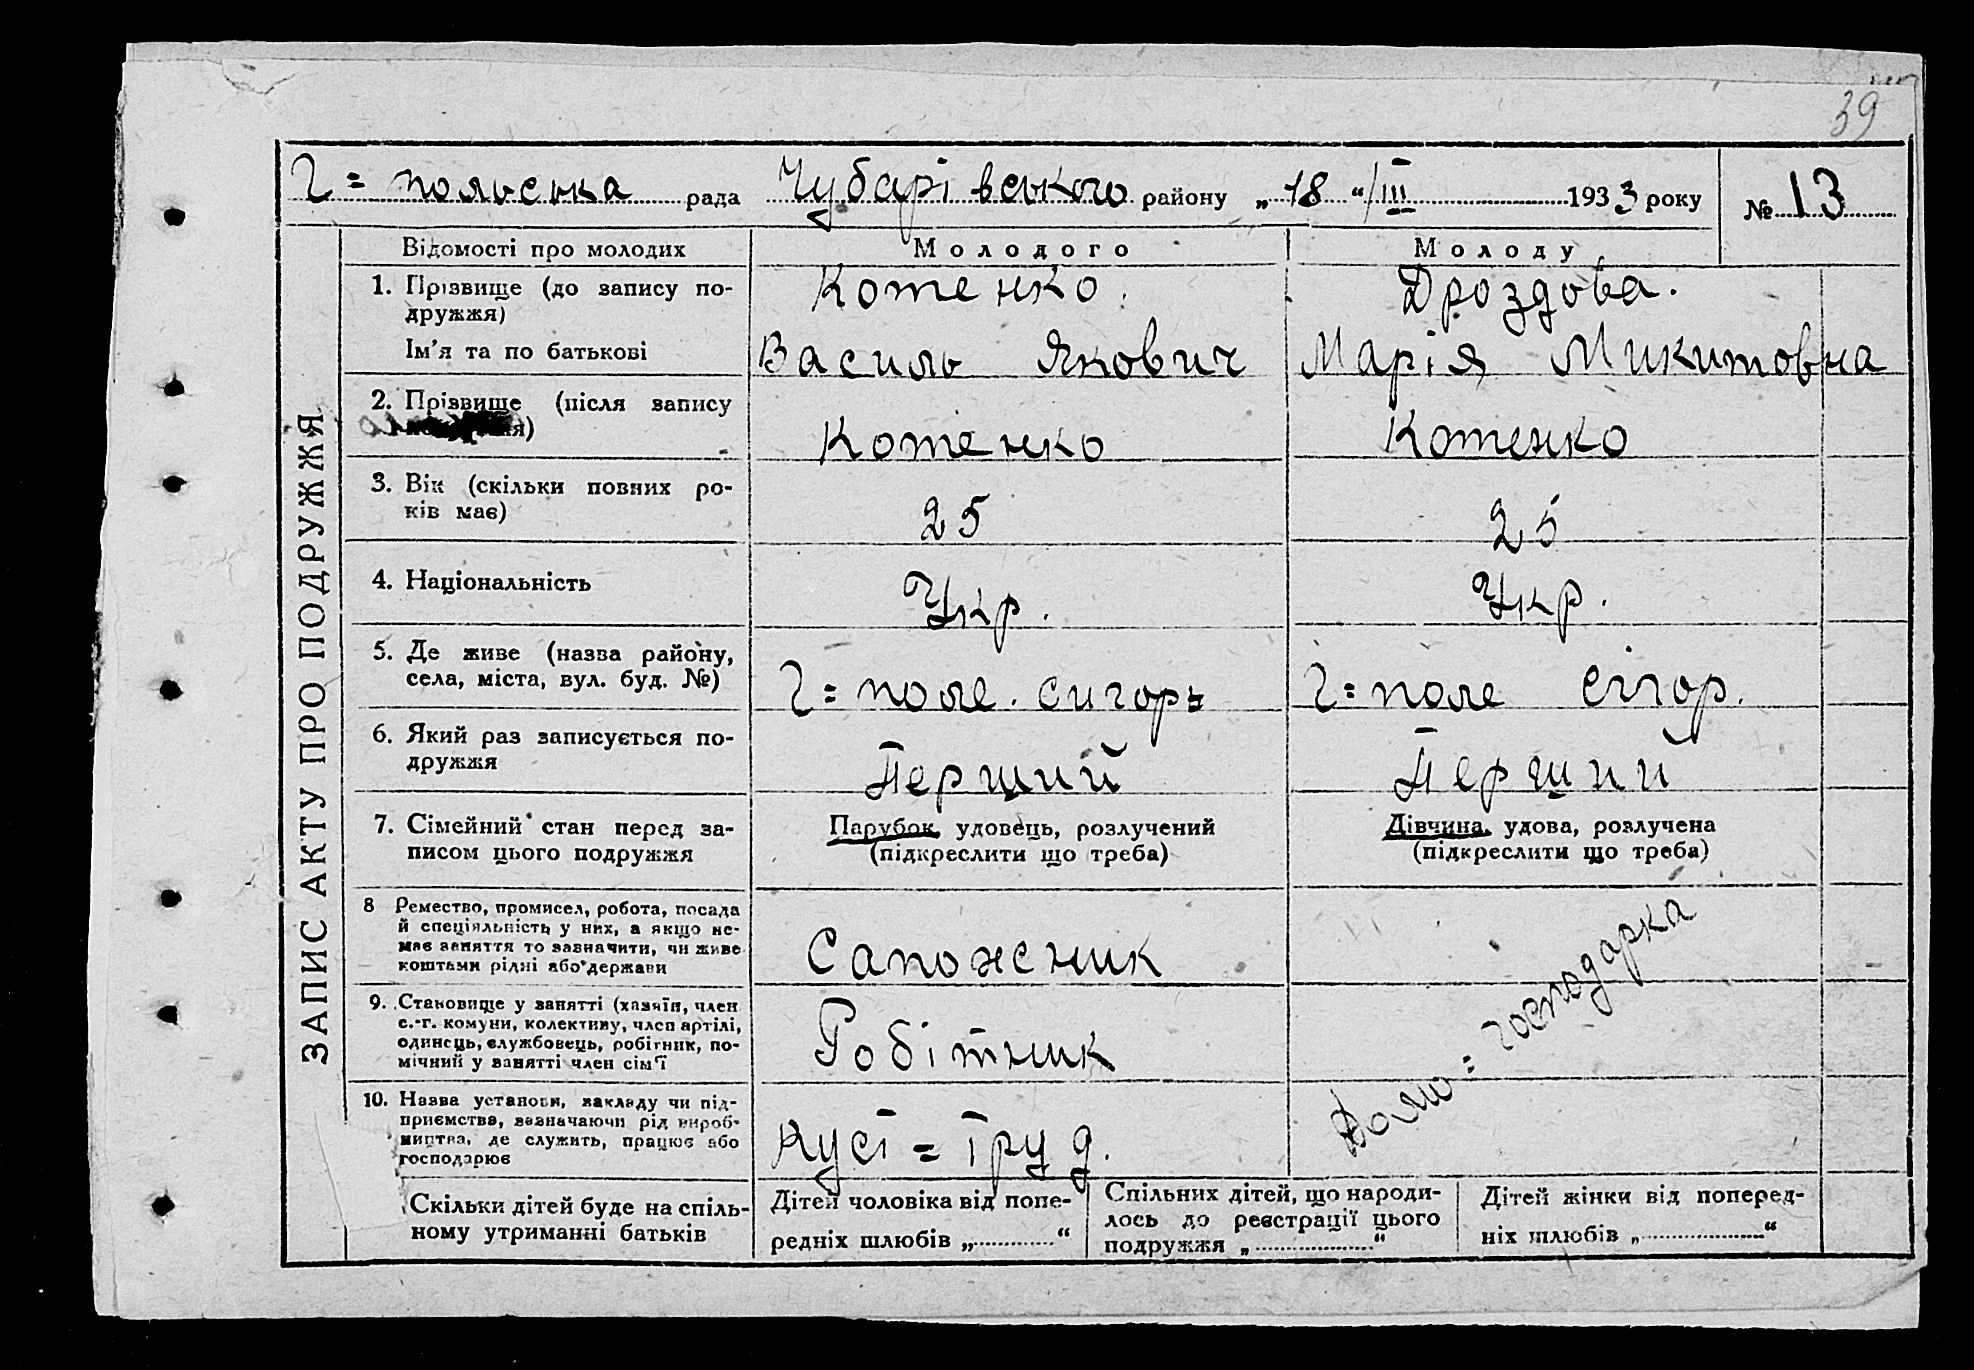 39
Г= польська рада Чубарівського району „ 18 “ /III 1933 року № 13
ЗАПИС АКТУ ПРО ПОДРУЖЖЯ
Відомості про молодих Молодого Молоду
1. Прізвище (до запису по-
дружжя)
Котенко. Дроздова.
Ім'я та по батькові Василь Якович Марія Микитовна
2. Прізвище (після запису
Котенко Котенко
3. Вік (скільки повних ро-
ків має)
25 25
4. Національність Укр. Укр.
5. Де живе (назва району,
села, міста, вул. буд. №)
Г= поле. Г= поле
6. Який раз записується по-
дружжя
Перший Перший
7. Сімейний стан перед за-
писом цього подружжя
Парубок, удовець, розлучений
(підкреслити що треба)
Дівчина, удова, розлучена
(підкреслити що треба)
8 Ремество, промисел, робота, посада
й спеціяльність у них, а якщо не-
має заняття то зазначити, чи живе
коштами рідні або держави
Сапожник
Домо=господарка
9. Становище у занятті (хазяїн, член
с.-г. комуни, колективу, член артілі,
одинець, службовець, робітник, по-
мічний у занятті член сім'ї
Робітник
10. Назва установи, закладу чи під-
приємства, зазначаючи рід вироб-
ництва, де служить, працює або
господарює
Кусі=Труд.
Скільки дітей буде на спіль-
ному утриманні батьків
Дітей чоловіка від попе-
редніх шлюбів „ “
Спільних дітей, що народи-
лось до реєстрації цього
подружжя „ “
Дітей жінки від поперед-
ніх шлюбів „ “